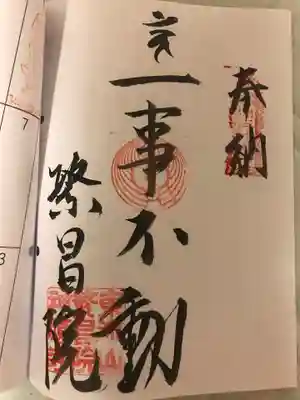 奉納
言一事不動
繁昌院
7
3